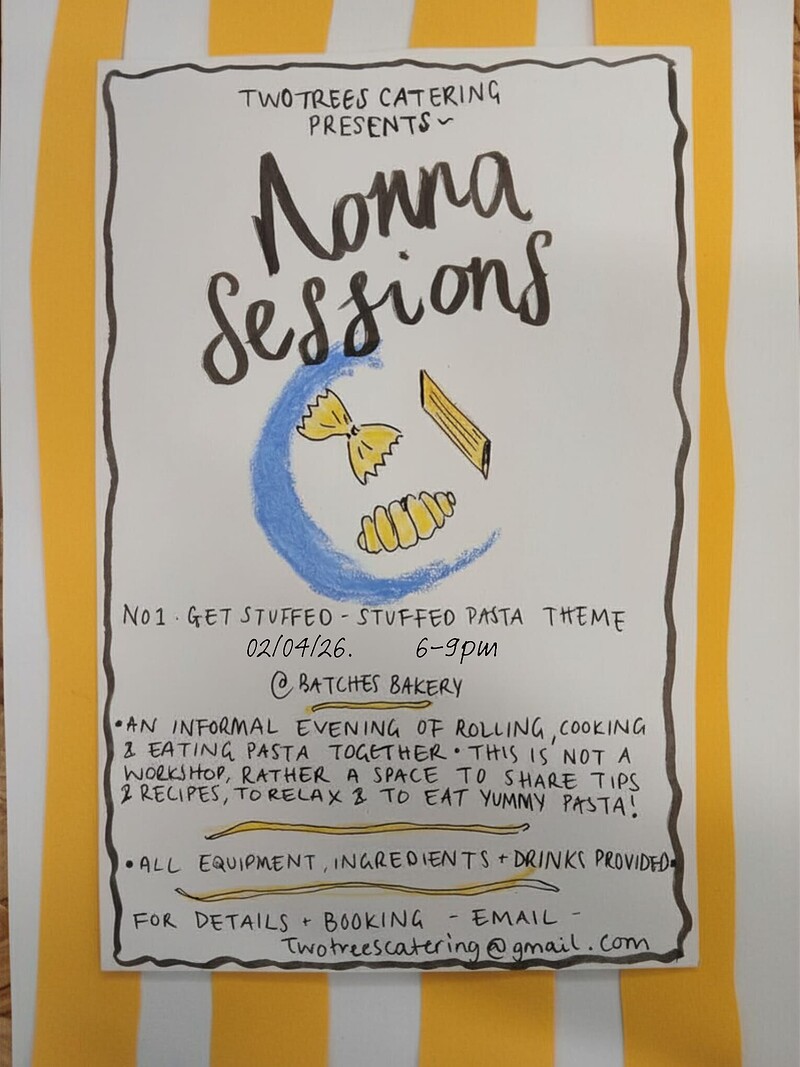 TWOTREES CATERING
PRESENTS~
Nonna
Sessions
NO1 · GET STUFFED - STUFFED PASTA THEME
02/04/26. 6-9pm
@ BATCHES BAKERY
• AN INFORMAL EVENING OF ROLLING, COOKING
& EATING PASTA TOGETHER • THIS IS NOT A
WORKSHOP, RATHER A SPACE TO SHARE TIPS
& RECIPES, TO RELAX & TO EAT YUMMY PASTA!
• ALL EQUIPMENT, INGREDIENTS + DRINKS PROVIDED•
FOR DETAILS + BOOKING - EMAIL -
Twotreescatering@gmail.com